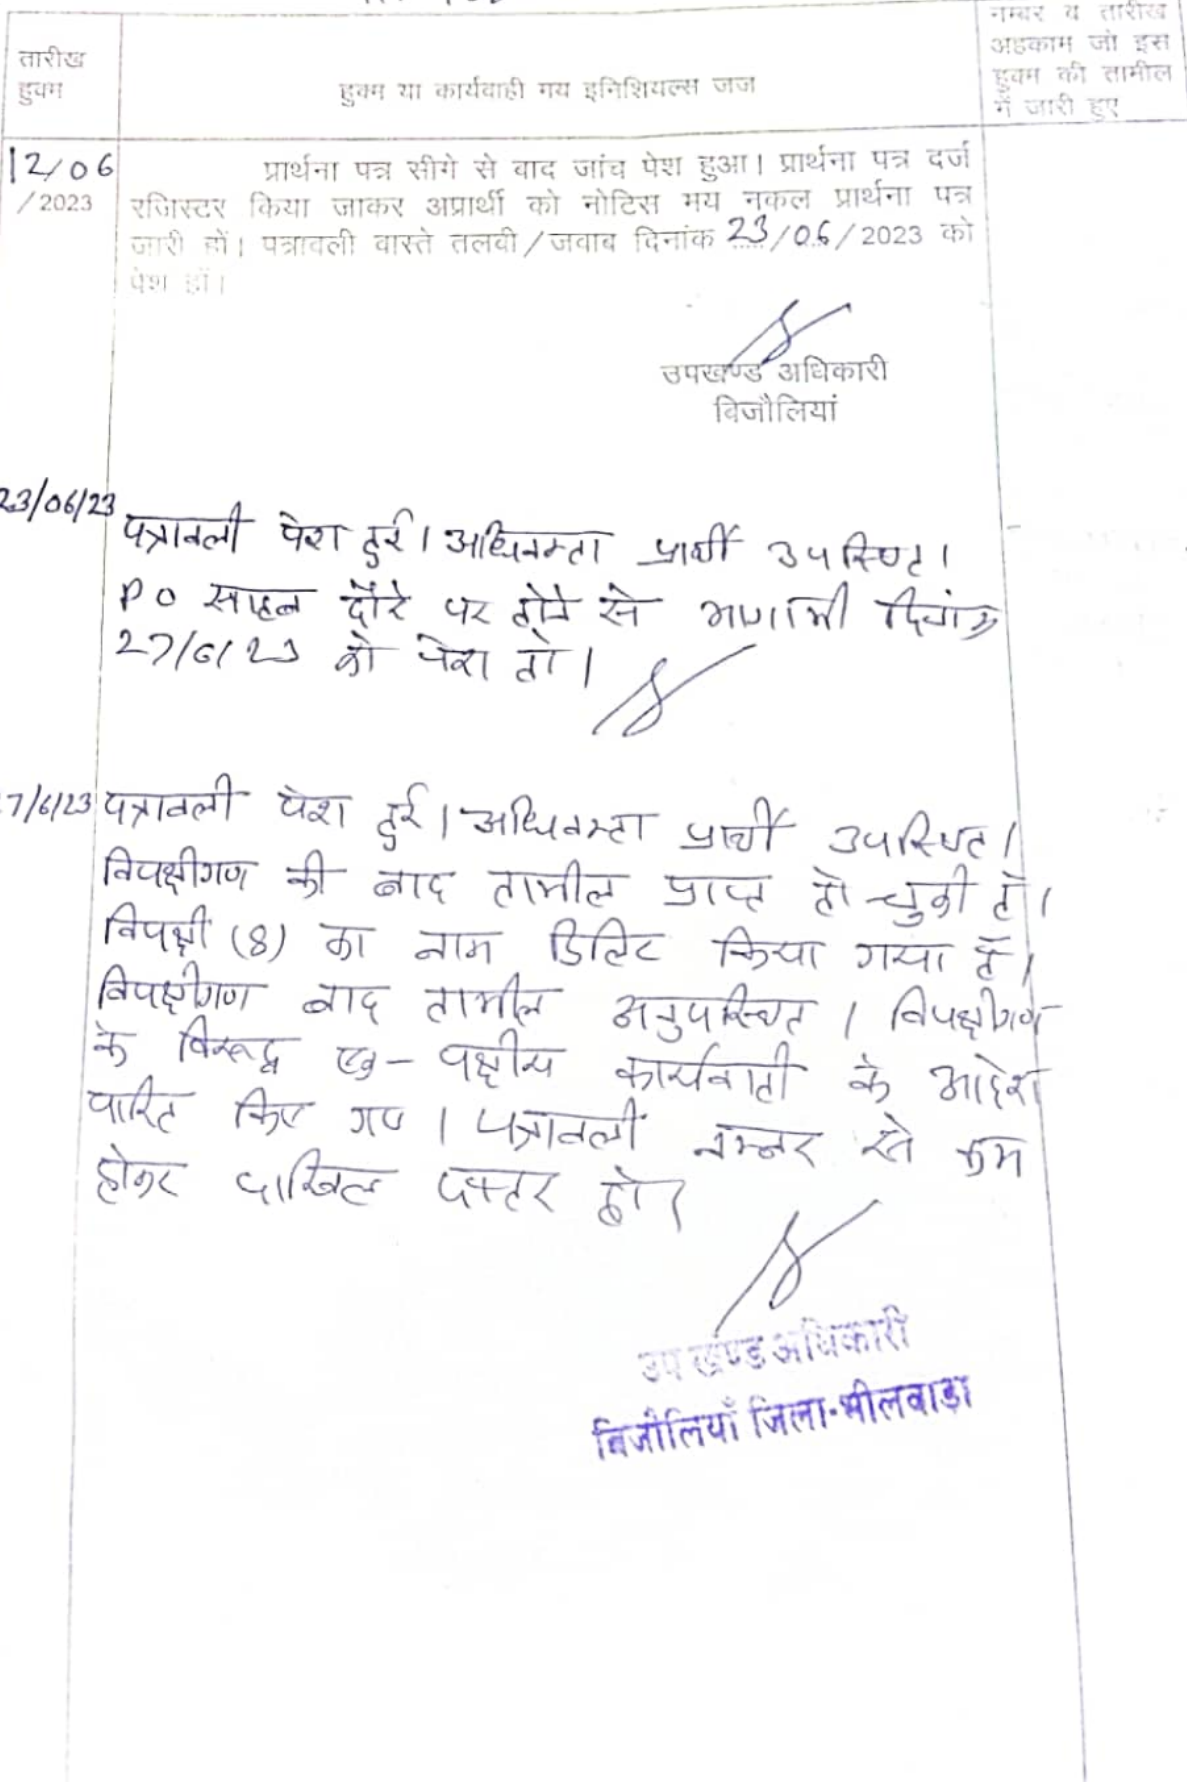 तारीख
हुक्म
हुक्म या कार्यवाही मय इनिशियल्स जज
नम्बर व तारीख
अहकाम जो इस
हुक्म की तामील
में जारी हुए
12/06
/2023
प्रार्थना पत्र सीगे से वाद जांच पेश हुआ। प्रार्थना पत्र दर्ज
रजिस्टर किया जाकर अप्रार्थी को नोटिस मय नकल प्रार्थना पत्र
जारी हों। पत्रावली वास्ते तलवी/जवाब दिनांक 23/06/2023 को
पेश हों।
उपखण्ड अधिकारी
विजौलियां
23/06/23
पत्रावली पेश हुई। अधिवक्ता प्रार्थी उपस्थित।
PO साहब दौरे पर होने से आगामी दिनांक
27/6/23 को पेश हो।
7/6/23
पत्रावली पेश हुई। अधिवक्ता प्रार्थी उपस्थित।
विपक्षीगण की बाद तामील प्राप्त हो चुकी है।
विपक्षी (8) का नाम डिलिट किया गया है।
विपक्षीगण बाद तामील अनुपस्थित। विपक्षीगण
के विरूद्ध एक-पक्षीय कार्यवाही के आदेश
पारित किए गए। पत्रावली नम्बर से कम
होकर दाखिल दफ्तर हो।
उप खण्ड अधिकारी
बिजौलियाँ जिला-भीलवाडा